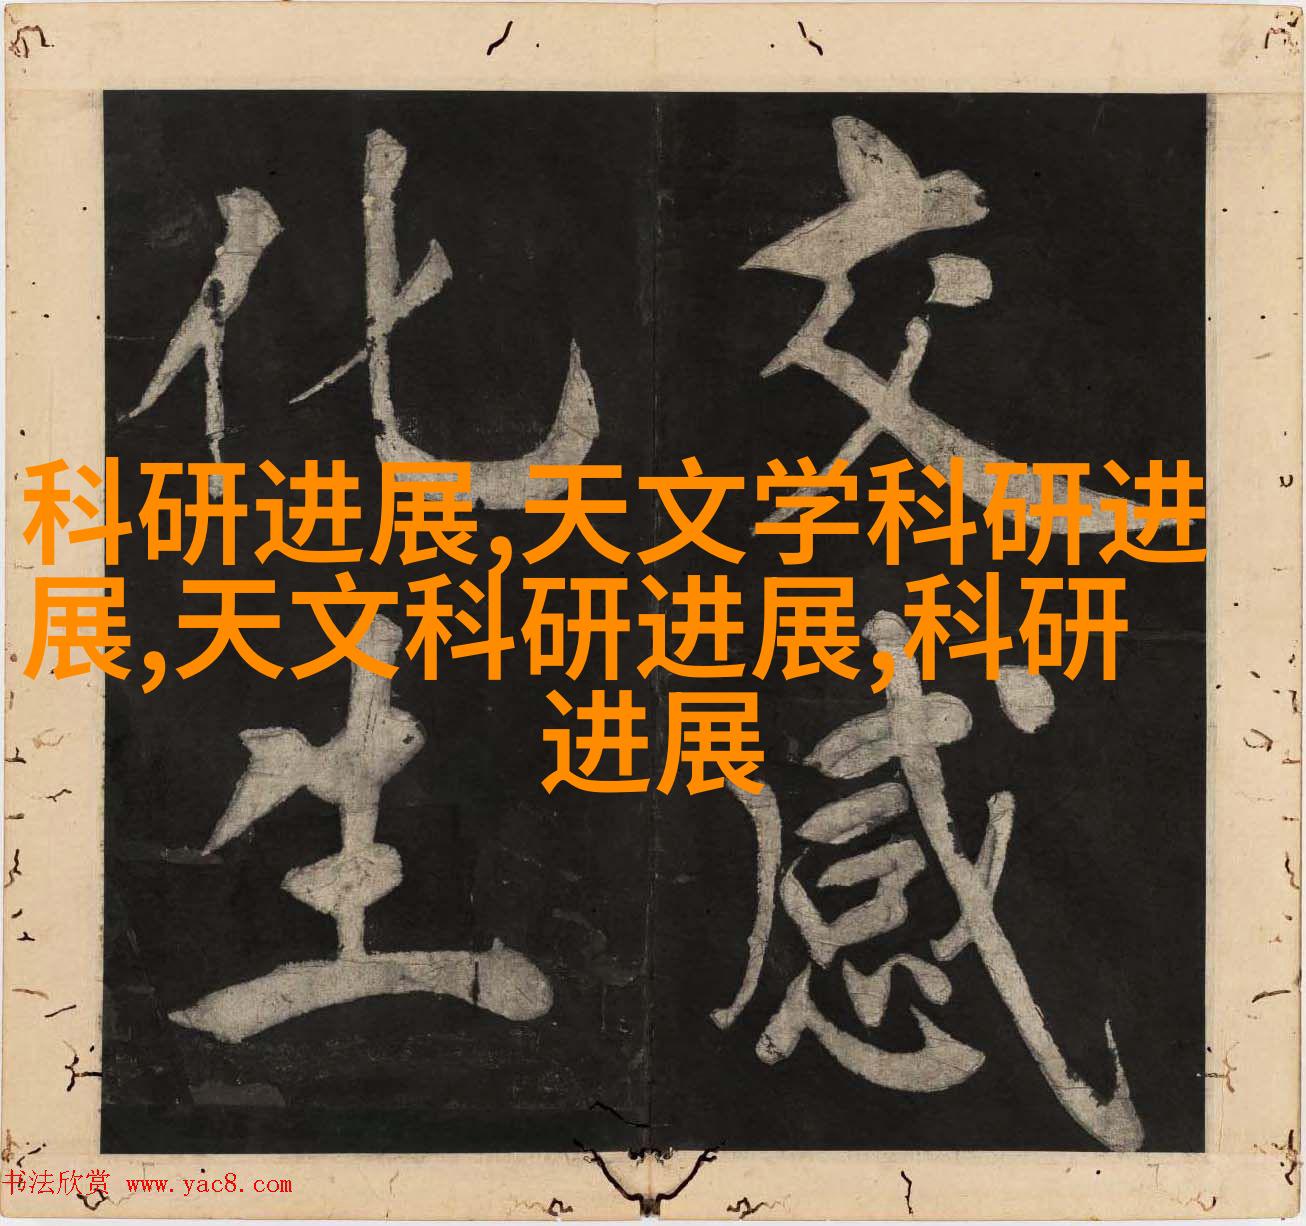 交感
化生
科研进展,天文学科研进
展,天文科研进展,科研
进展
书法欣赏 www.yac8.com